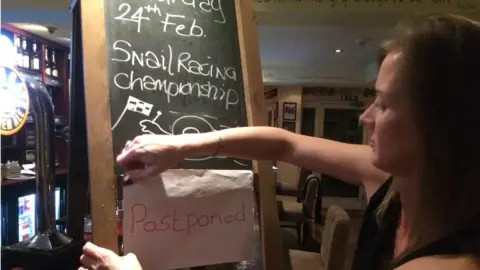 24th Feb.
Snail Racing
championship
Postponed